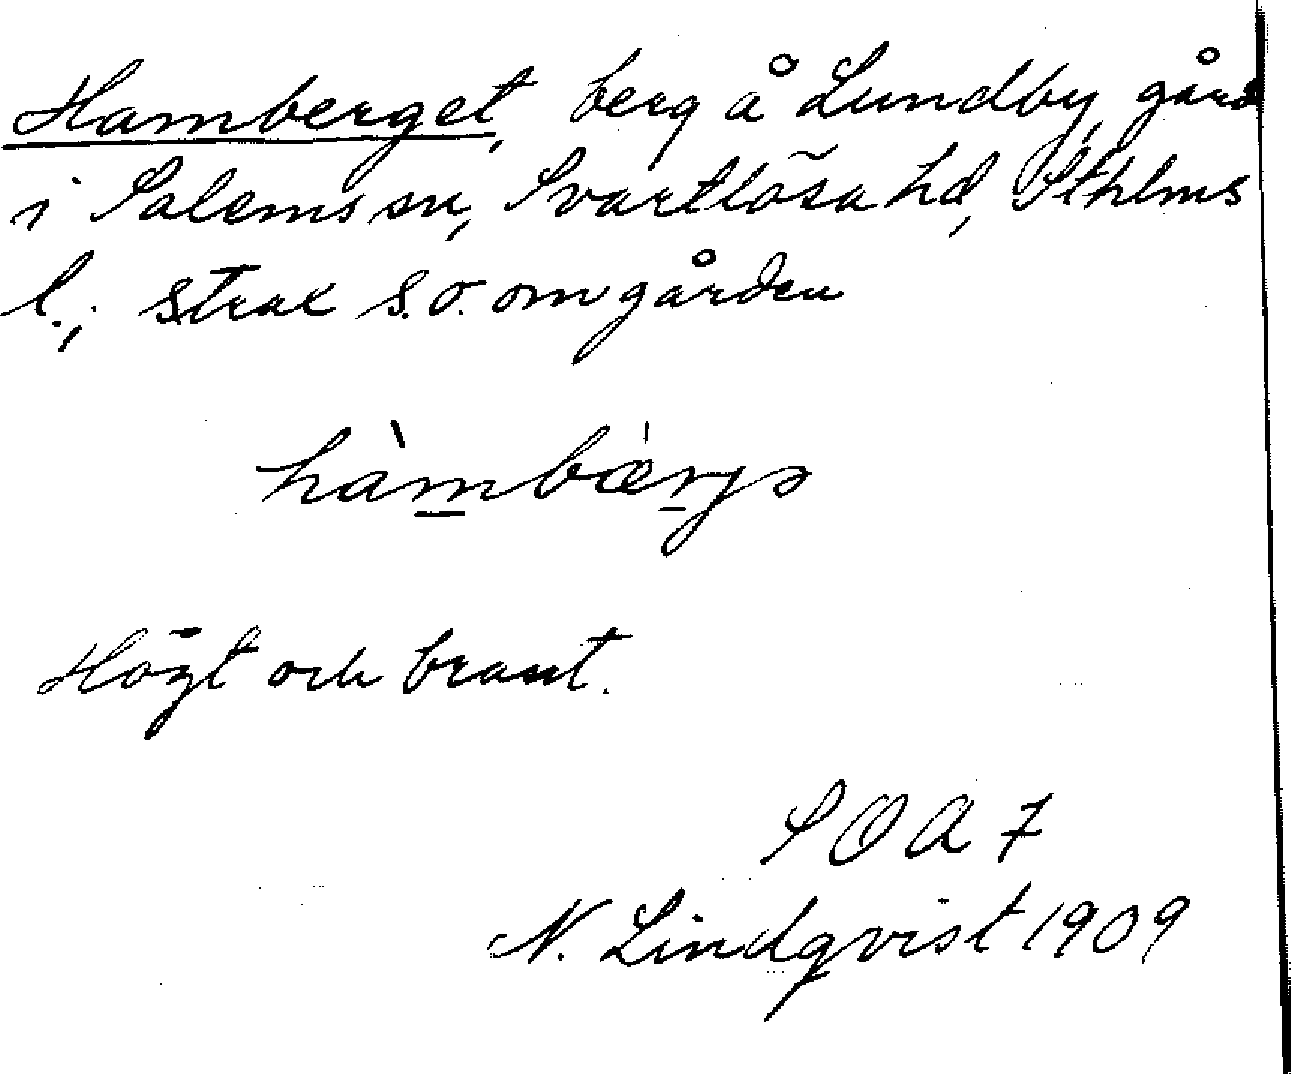 Hamberget, berg å Lundby, gård
i Salems sn, Svartlösa hd, Sthlms
l.; strax s.o. om gården
hàmbærjə
Högt och brant.
SOA 7
N. Lindqvist 1909